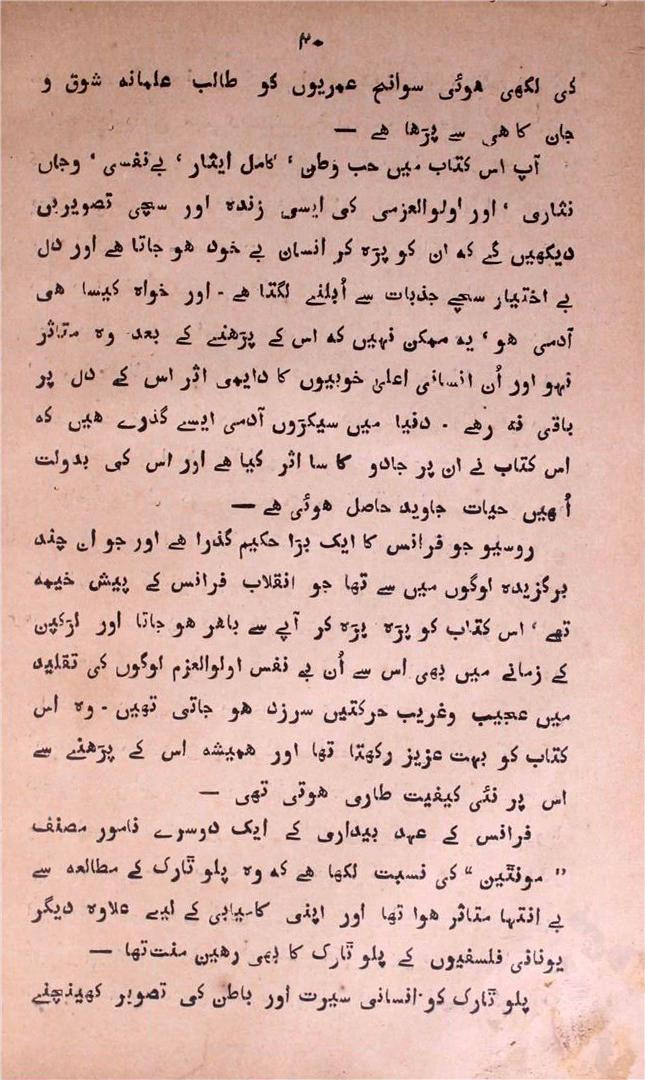 ۳۰
کی لکھی ھوئی سوانح عمریوں کو طالب علمانہ شوق و
جان کاھی سے پڑھا ھے —
آپ اس کتاب میں حب وطن ‘ کامل ایثار ‘ بےنفسی ‘ وجاں
نثاری ‘ اور اولوالعزمی کی ایسی زندہ اور سچی تصویریں
دیکھیں گے کہ ان کو پڑہ کر انسان بے خود ھو جاتا ھے اور دل
بے اختیار سچے جذبات سے اُبلنے لگتا ھے - اور خواہ کیسا ھی
آدمی ھو ‘ یہ ممکن نہیں کہ اس کے پڑھنے کے بعد وہ متاثر
نہو اور اُن انسانی اعلیٰ خوبیوں کا دایمی اثر اس کے دل پر
باقی نہ رھے - دنیا میں سیکڑوں آدمی ایسے گذرے ھیں کہ
اس کتاب نے ان پر جادو کا سا اثر کیا ھے اور اس کی بدولت
اُنھیں حیات جاوید حاصل ھوئی ھے —
روسیو جو فرانس کا ایک بڑا حکیم گذرا ھے اور جو ان چند
برگزیدہ لوگوں میں سے تھا جو انقلاب فرانس کے پیش خیمہ
تھے ‘ اس کتاب کو پڑہ پڑہ کر آپے سے باھر ھو جاتا اور لڑکپن
کے زمانے میں بھی اس سے اُن بے نفس اولوالعزم لوگوں کی تقلید
میں عجیب وغریب حرکتیں سرزد ھو جاتی تھیں - وہ اس
کتاب کو بہت عزیز رکھتا تھا اور ھمیشہ اس کے پڑھنے سے
اس پر نئی کیفیت طاری ھوتی تھی —
فرانس کے عہد بیداری کے ایک دوسرے نامور مصنف
” مونٹین “ کی نسبت لکھا ھے کہ وہ پلو ٹارک کے مطالعہ سے
بے انتہا متاثر ھوا تھا اور اپنی کامیابی کے لیے علاوہ دیگر
یونانی فلسفیوں کے پلو ٹارک کا بھی رھین منت تھا —
پلو ٹارک کو انسانی سیرت اور باطن کی تصویر کھینچنے